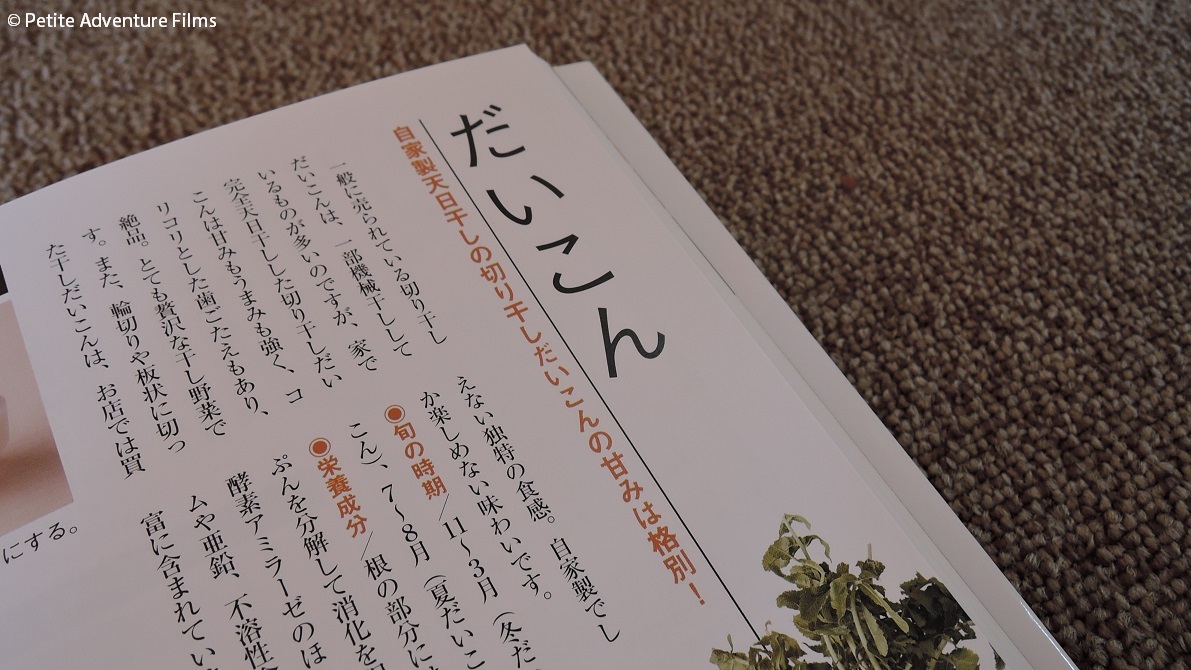 © Petite Adventure Films
だいこん
自家製天日干しの切り干しだいこんの甘みは格別！
一般に売られている切り干し
だいこんは、一部機械干しして
いるものが多いのですが、家で
完全天日干しした切り干しだい
こんは甘みもうまみも強く、コ
リコリとした歯ごたえもあり、
絶品。とても贅沢な干し野菜で
す。また、輪切りや板状に切っ
た干しだいこんは、お店では買
えない独特の食感。自家製でし
か楽しめない味わいです。
◉旬の時期／11〜3月（冬だい
こん）、7〜8月（夏だいこ
◉栄養成分／根の部分に
ぷんを分解して消化を
酵素アミラーゼのほ
ムや亜鉛、不溶性
富に含まれてい
にする。